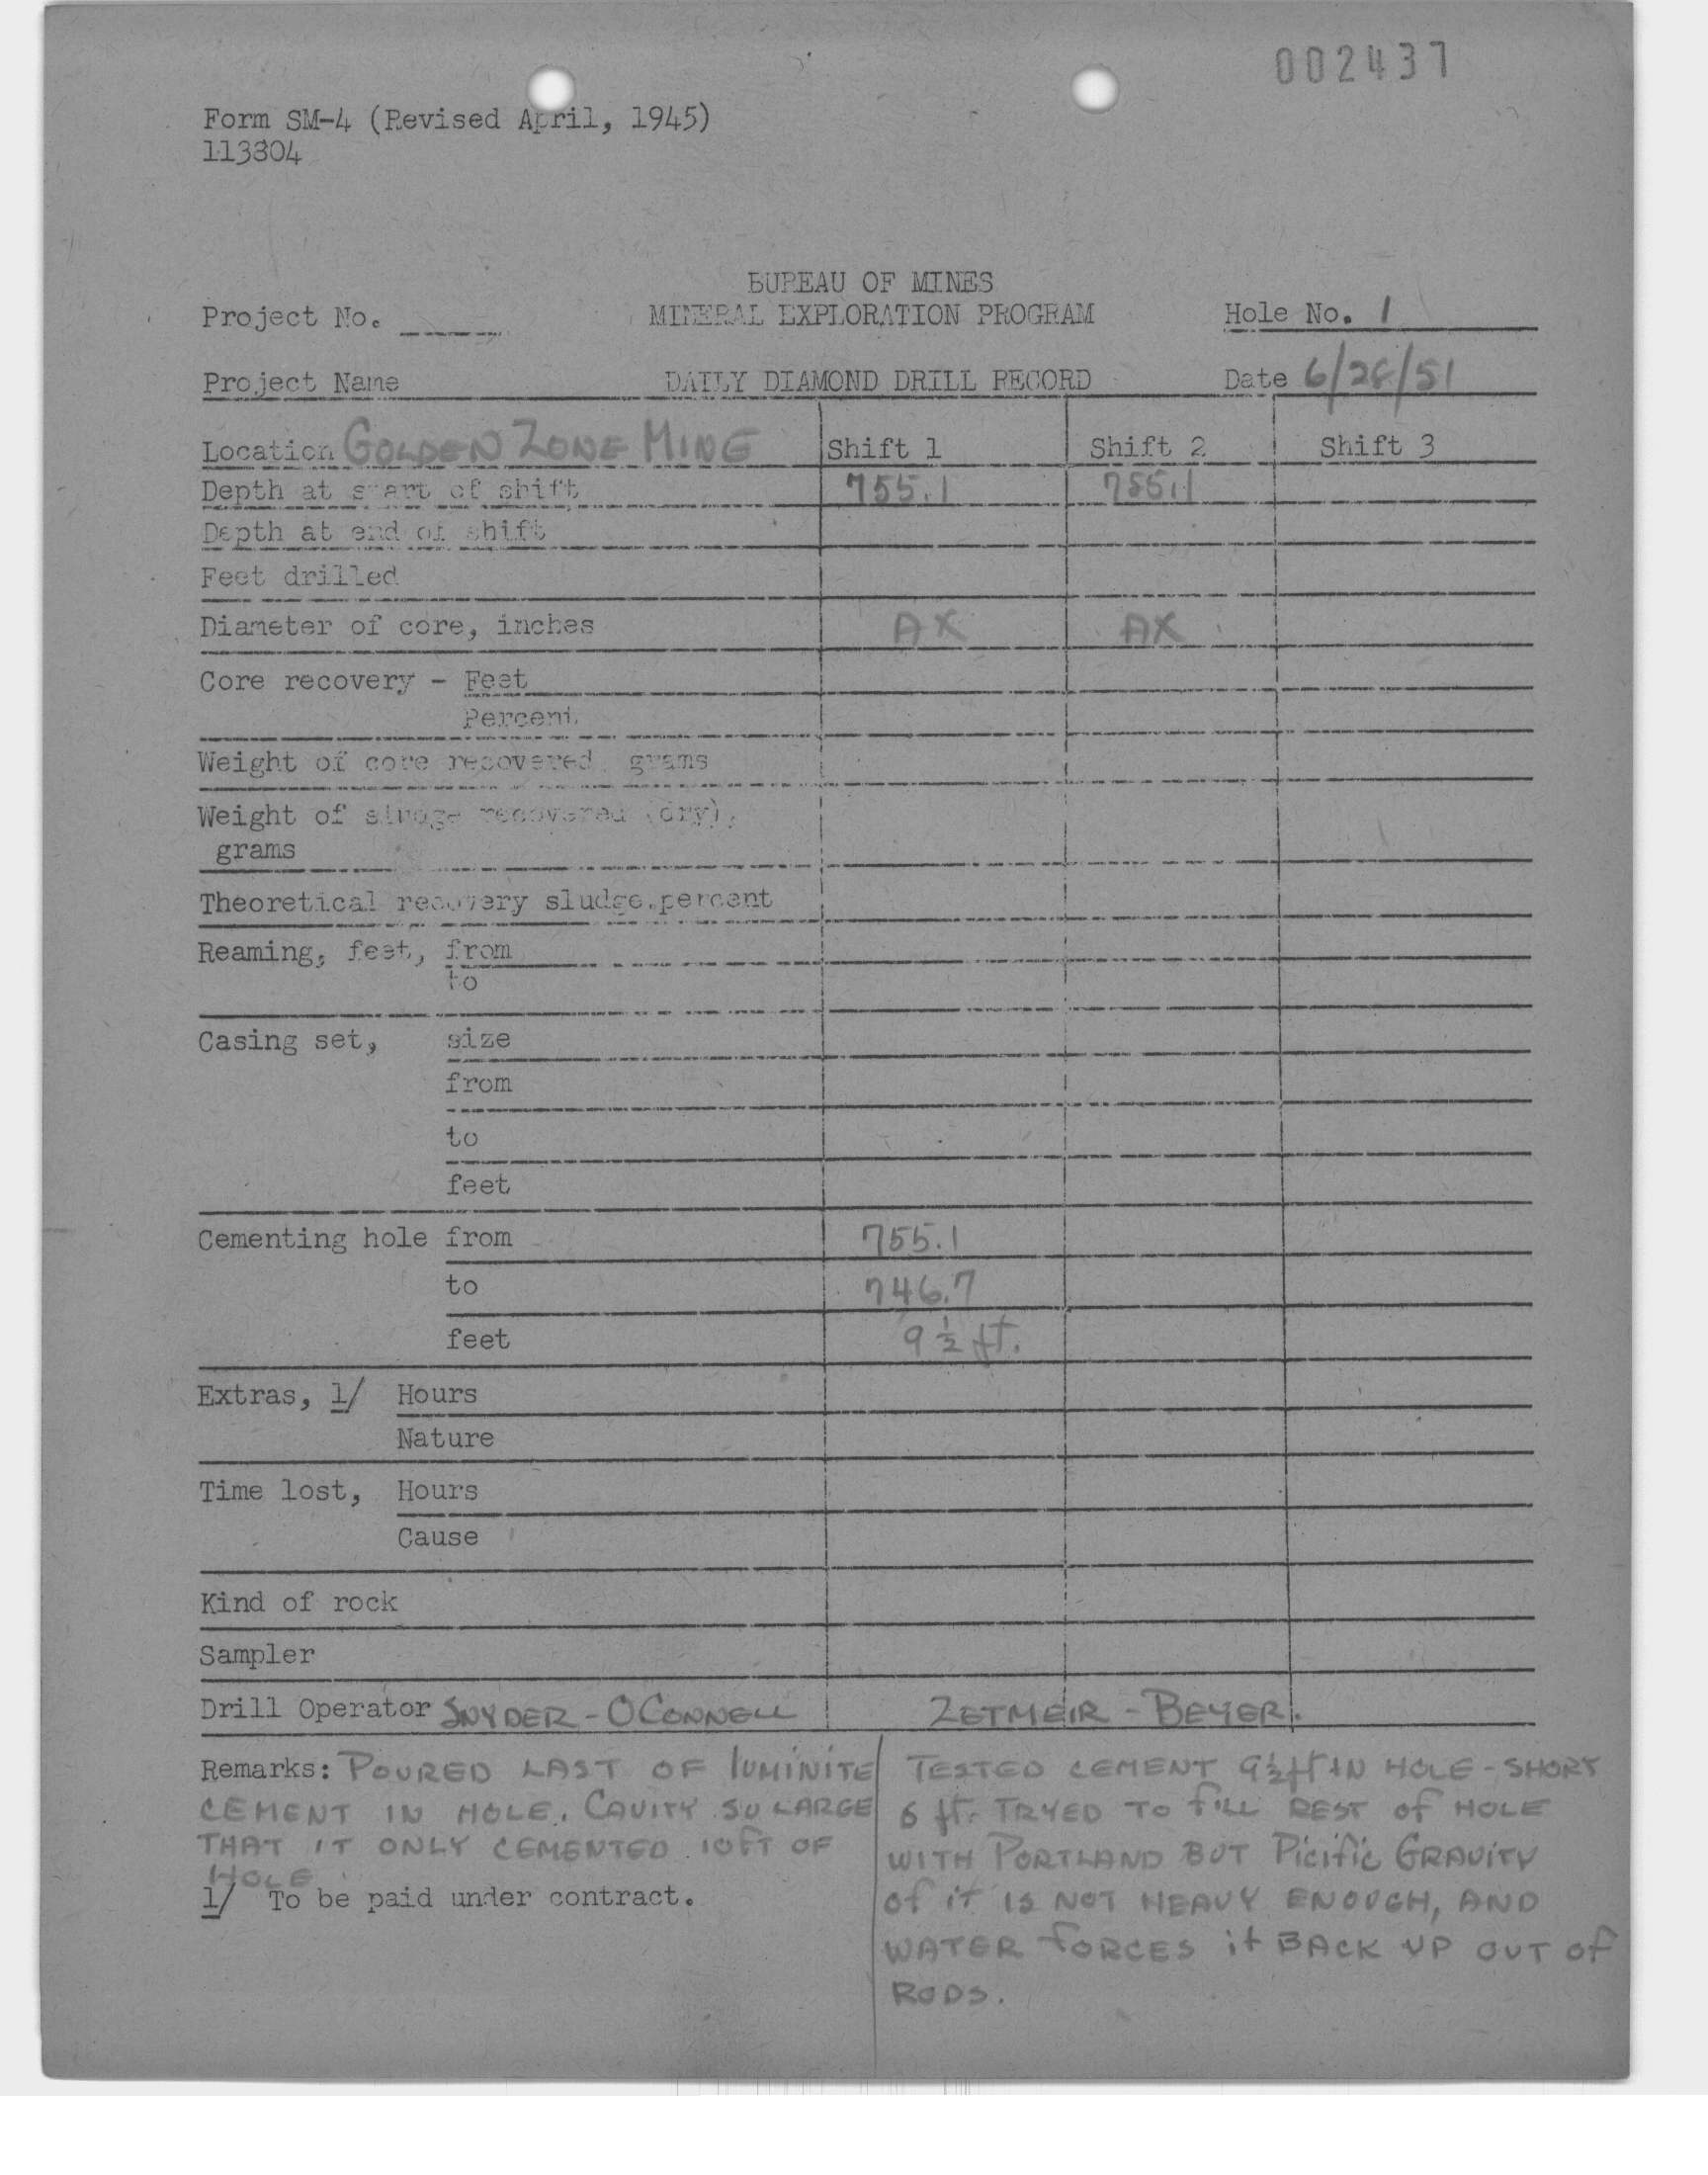 002437
Form SM-4 (Revised April, 1945)
113304
BUREAU OF MINES
Project No. MINERAL EXPLORATION PROGRAM Hole No. 1
Project Name DAILY DIAMOND DRILL RECORD Date 6/28/51
Location GOLDEN ZONE MINE Shift 1 Shift 2 Shift 3
Depth at start of shift 755.1 755.1
Depth at end of shift
Feet drilled
Diameter of core, inches AX AX
Core recovery - Feet
Percent
Weight of core recovered, grams
Weight of sludge recovered (dry),
grams
Theoretical recovery sludge, percent
Reaming, feet, from
to
Casing set, size
from
to
feet
Cementing hole from 755.1
to 746.7
feet 9 1/2 ft.
Extras, 1/ Hours
Nature
Time lost, Hours
Cause
Kind of rock
Sampler
Drill Operator SNYDER - OCONNELL ZETMEIR - BEYER.
Remarks: POURED LAST OF LUMINITE
CEMENT IN HOLE. CAVITY SO LARGE
THAT IT ONLY CEMENTED 10FT OF
HOLE
1/ To be paid under contract.
TESTED CEMENT 9 1/2 ft IN HOLE - SHORT
6 ft. TRYED TO fILL REST of HOLE
WITH PORTLAND BUT Picific GRAVITY
of it IS NOT HEAVY ENOUGH, AND
WATER FORCES it BACK UP OUT of
RODS.